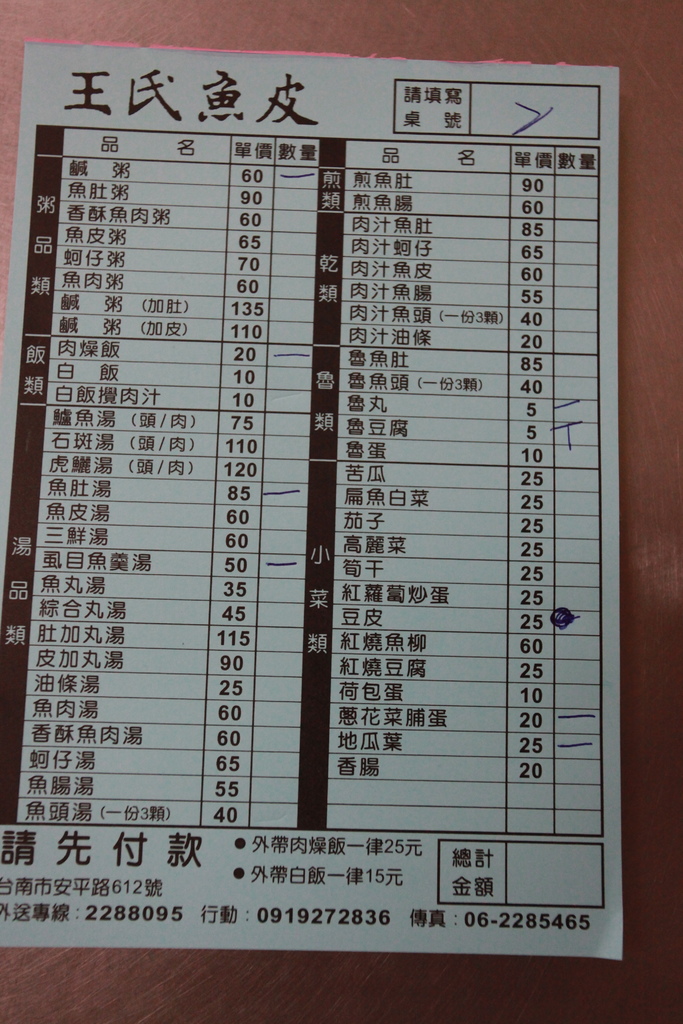 王氏魚皮
請填寫桌號
品名 單價 數量
粥品類
鹹粥 60 一
魚肚粥 90
香酥魚肉粥 60
魚皮粥 65
蚵仔粥 70
魚肉粥 60
鹹粥（加肚） 135
鹹粥（加皮） 110
飯類
肉燥飯 20 一
白飯 10
白飯攪肉汁 10
湯品類
鱸魚湯（頭/肉） 75
石斑湯（頭/肉） 110
虎鱺湯（頭/肉） 120
魚肚湯 85 一
魚皮湯 60
三鮮湯 60
虱目魚羹湯 50 一
魚丸湯 35
綜合丸湯 45
肚加丸湯 115
皮加丸湯 90
油條湯 25
魚肉湯 60
香酥魚肉湯 60
蚵仔湯 65
魚腸湯 55
魚頭湯（一份3顆） 40
品名 單價 數量
煎類
煎魚肚 90
煎魚腸 60
乾類
肉汁魚肚 85
肉汁蚵仔 65
肉汁魚皮 60
肉汁魚腸 55
肉汁魚頭（一份3顆） 40
肉汁油條 20
魯類
魯魚肚 85
魯魚頭（一份3顆） 40
魯丸 5
魯豆腐 5
魯蛋 10
小菜類
苦瓜 25
扁魚白菜 25
茄子 25
高麗菜 25
筍干 25
紅蘿蔔炒蛋 25
豆皮 25
紅燒魚柳 60
紅燒豆腐 25
荷包蛋 10
蔥花菜脯蛋 20 一
地瓜葉 25 一
香腸 20
請先付款
●外帶肉燥飯一律25元
●外帶白飯一律15元
總計金額
台南市安平路612號
外送專線：2288095 行動：0919272836 傳真：06-2285465